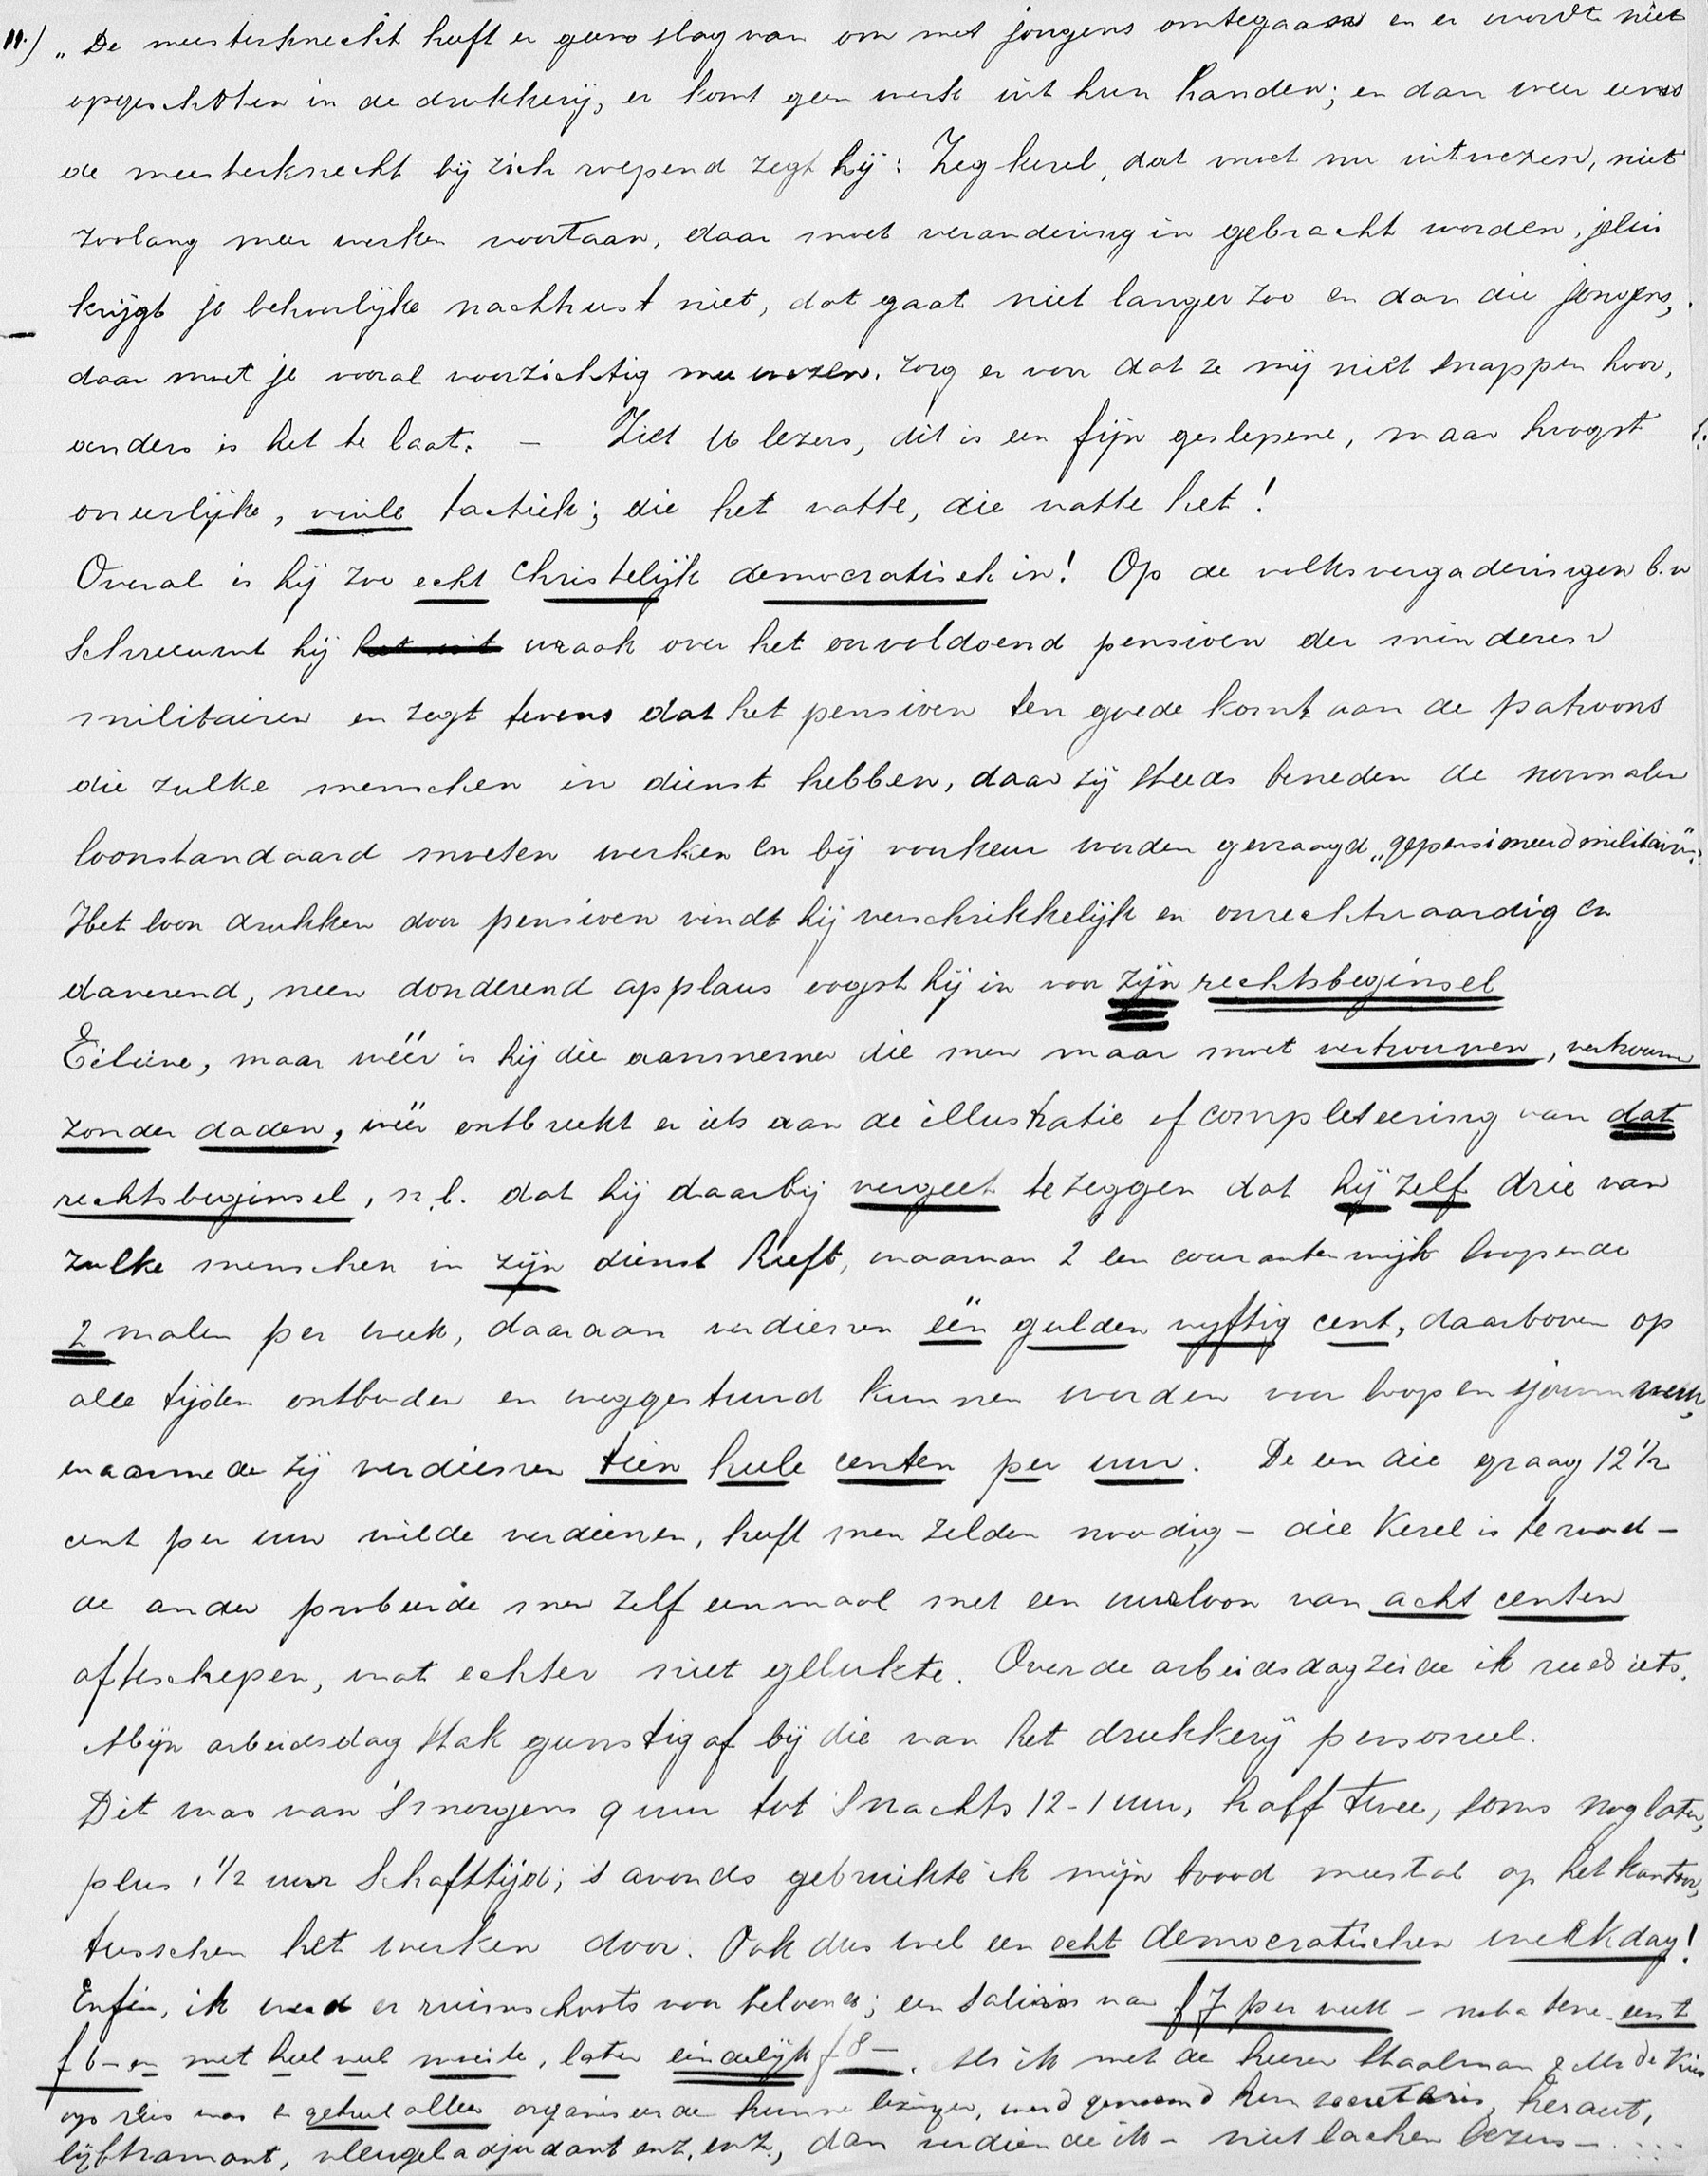 11.) „De meesterknecht heeft er geen slag van om met jongens omtegaan en er wordt niet
opgeschoten in de drukkerij, er komt geen werk uit hun handen; en dan weer eens
de meesterknecht bij zich roepend zegt hij: Zeg kerel, dat moet nu uitwezen, niet
zoolang meer werken voortaan, daar moet verandering in gebracht worden, jelui
krijgt je behoorlijke nachtrust niet, dat gaat niet langer zoo en dan die jongens,
daar moet je vooral voorzichtig mee wezen. zorg er voor dat ze mij niet snappen hoor,
anders is het te laat. – Ziet U lezers, dit is een fijn geslepene, maar hoogst
oneerlijke, vuile tactiek; die het vatte, die vatte het!
Overal is hij zoo echt Christelijk democratisch in! Op de volksvergaderingen b.v
Schreeuwt hij het uit wraak over het onvoldoend pensioen der minderen
militairen en zegt tevens dat het pensioen ten goede komt aan de patroons
die zulke menschen in dienst hebben, daar zij steeds beneden de normalen
loonstandaard moeten werken en bij voorkeur worden gevraagd „gepensioneerd militair".
Het loon drukken door pensioen vindt hij verschrikkelijk en onrechtvaardig en
daverend, neen donderend applaus oogst hij in voor zijn rechtsbeginsel
Eilieve, maar wéér is hij die aannemer die men maar moet vertrouwen, vertrouwen
zonder daden, wéér ontbreekt er iets aan de illustratie of completeering van dat
rechtsbeginsel, n.l. dat hij daarbij vergeet te zeggen dat hij zelf drie van
zulke menschen in zijn dienst heeft, waarvan 2 een courantenwijk loopende
2 malen per week, daaraan verdienen één gulden vyftig cent, daarboven op
alle tijden ontboden en weggestuurd kunnen worden voor loop en sjouwwerk,
waarmede zij verdienen tien heele centen per uur. De een die graag 12½
cent per uur wilde verdienen, heeft men zelden noodig – die Kerel is te rood –
de ander probeerde men zelf eenmaal met een uurloon van acht centen
afteschepen, wat echter niet gelukte. Over de arbeidsdag zeide ik reeds iets.
Mijn arbeidsdag stak gunstig af bij die van het drukkerij personeel.
Dit was van 's morgens 9 uur tot 's nachts 12-1 uur, half twee, soms nog later,
plus 1½ uur Schafttijd; 's avonds gebruikte ik mijn brood meestal op het kantoor,
tusschen het werken door. Ook dus wel een echt democratischen werkdag!
Enfin, ik werd er ruimschoots voor beloond; een Salaris van f 7 per week – nota bene eerst
f 6 – en met heel veel moeite, later eindelijk f 8 –. Als ik met de heeren Staalman & Mr de Vries
op reis was en geheel alleen organiseerde hunne lezingen, werd genoemd hun secretaris, heraut,
lijftrawant, vleugeladjudant enz. enz., dan verdiende ik – niet lachen lezers – . . . .